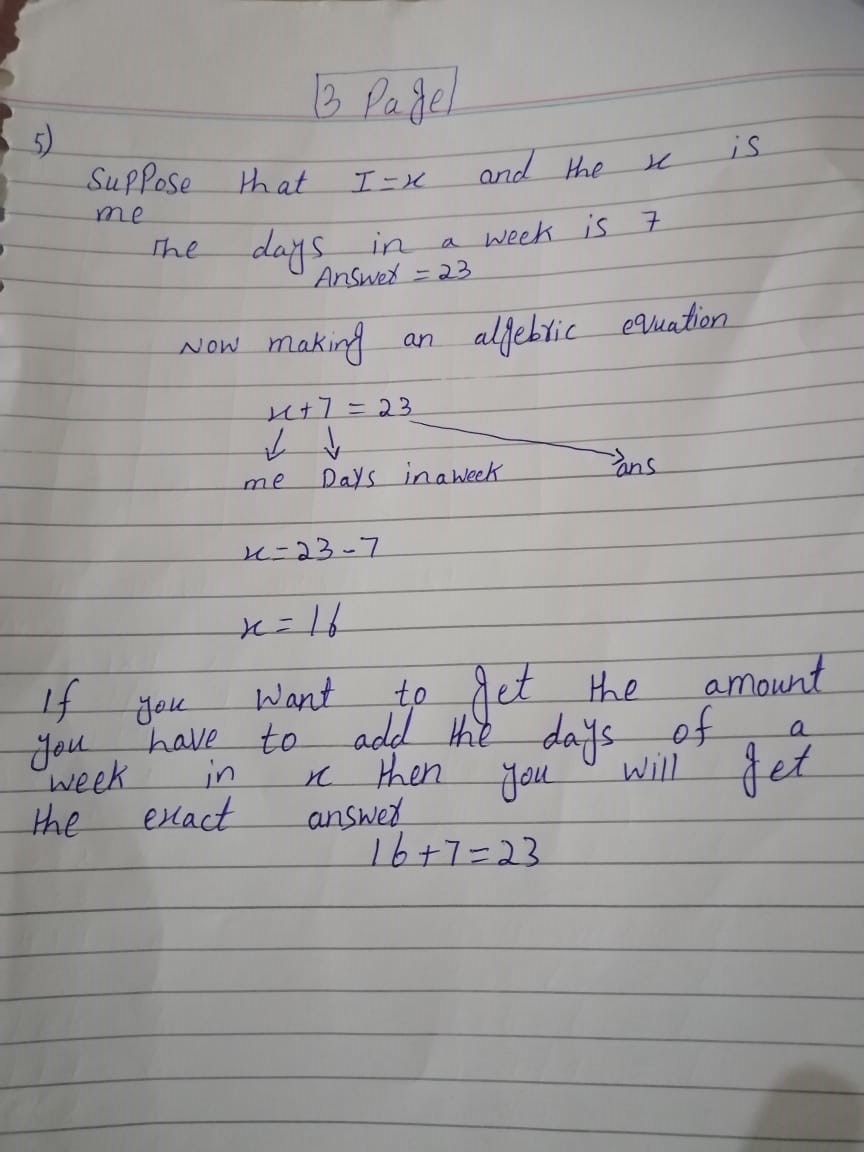 3 Page
5)
Suppose that I=x and the x is
me
The days in a week is 7
Answer = 23
Now making an algebric equation
x+7 = 23
me Days in a week ans
x=23-7
x=16
If you want to get the amount
you have to add the days of a
week in x then you will get
the exact answer
16+7=23